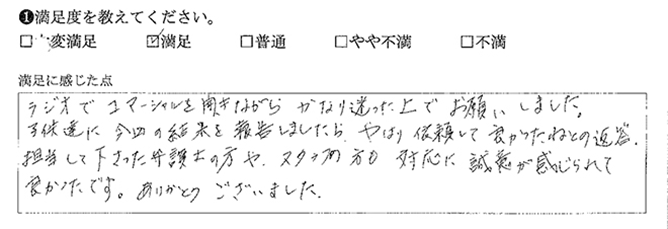 ❶満足度を教えてください。
□大変満足 ☑満足 □普通 □やや不満 □不満
満足に感じた点
ラジオでコマーシャルを聞きながら かなり迷った上で お願いしました。
子供達に 今回の結果を報告しましたら、やはり依頼して良かったねとの返答。
担当して下さった弁護士の方や、スタッフの方も 対応に誠意が感じられて
良かったです。ありがとうございました。